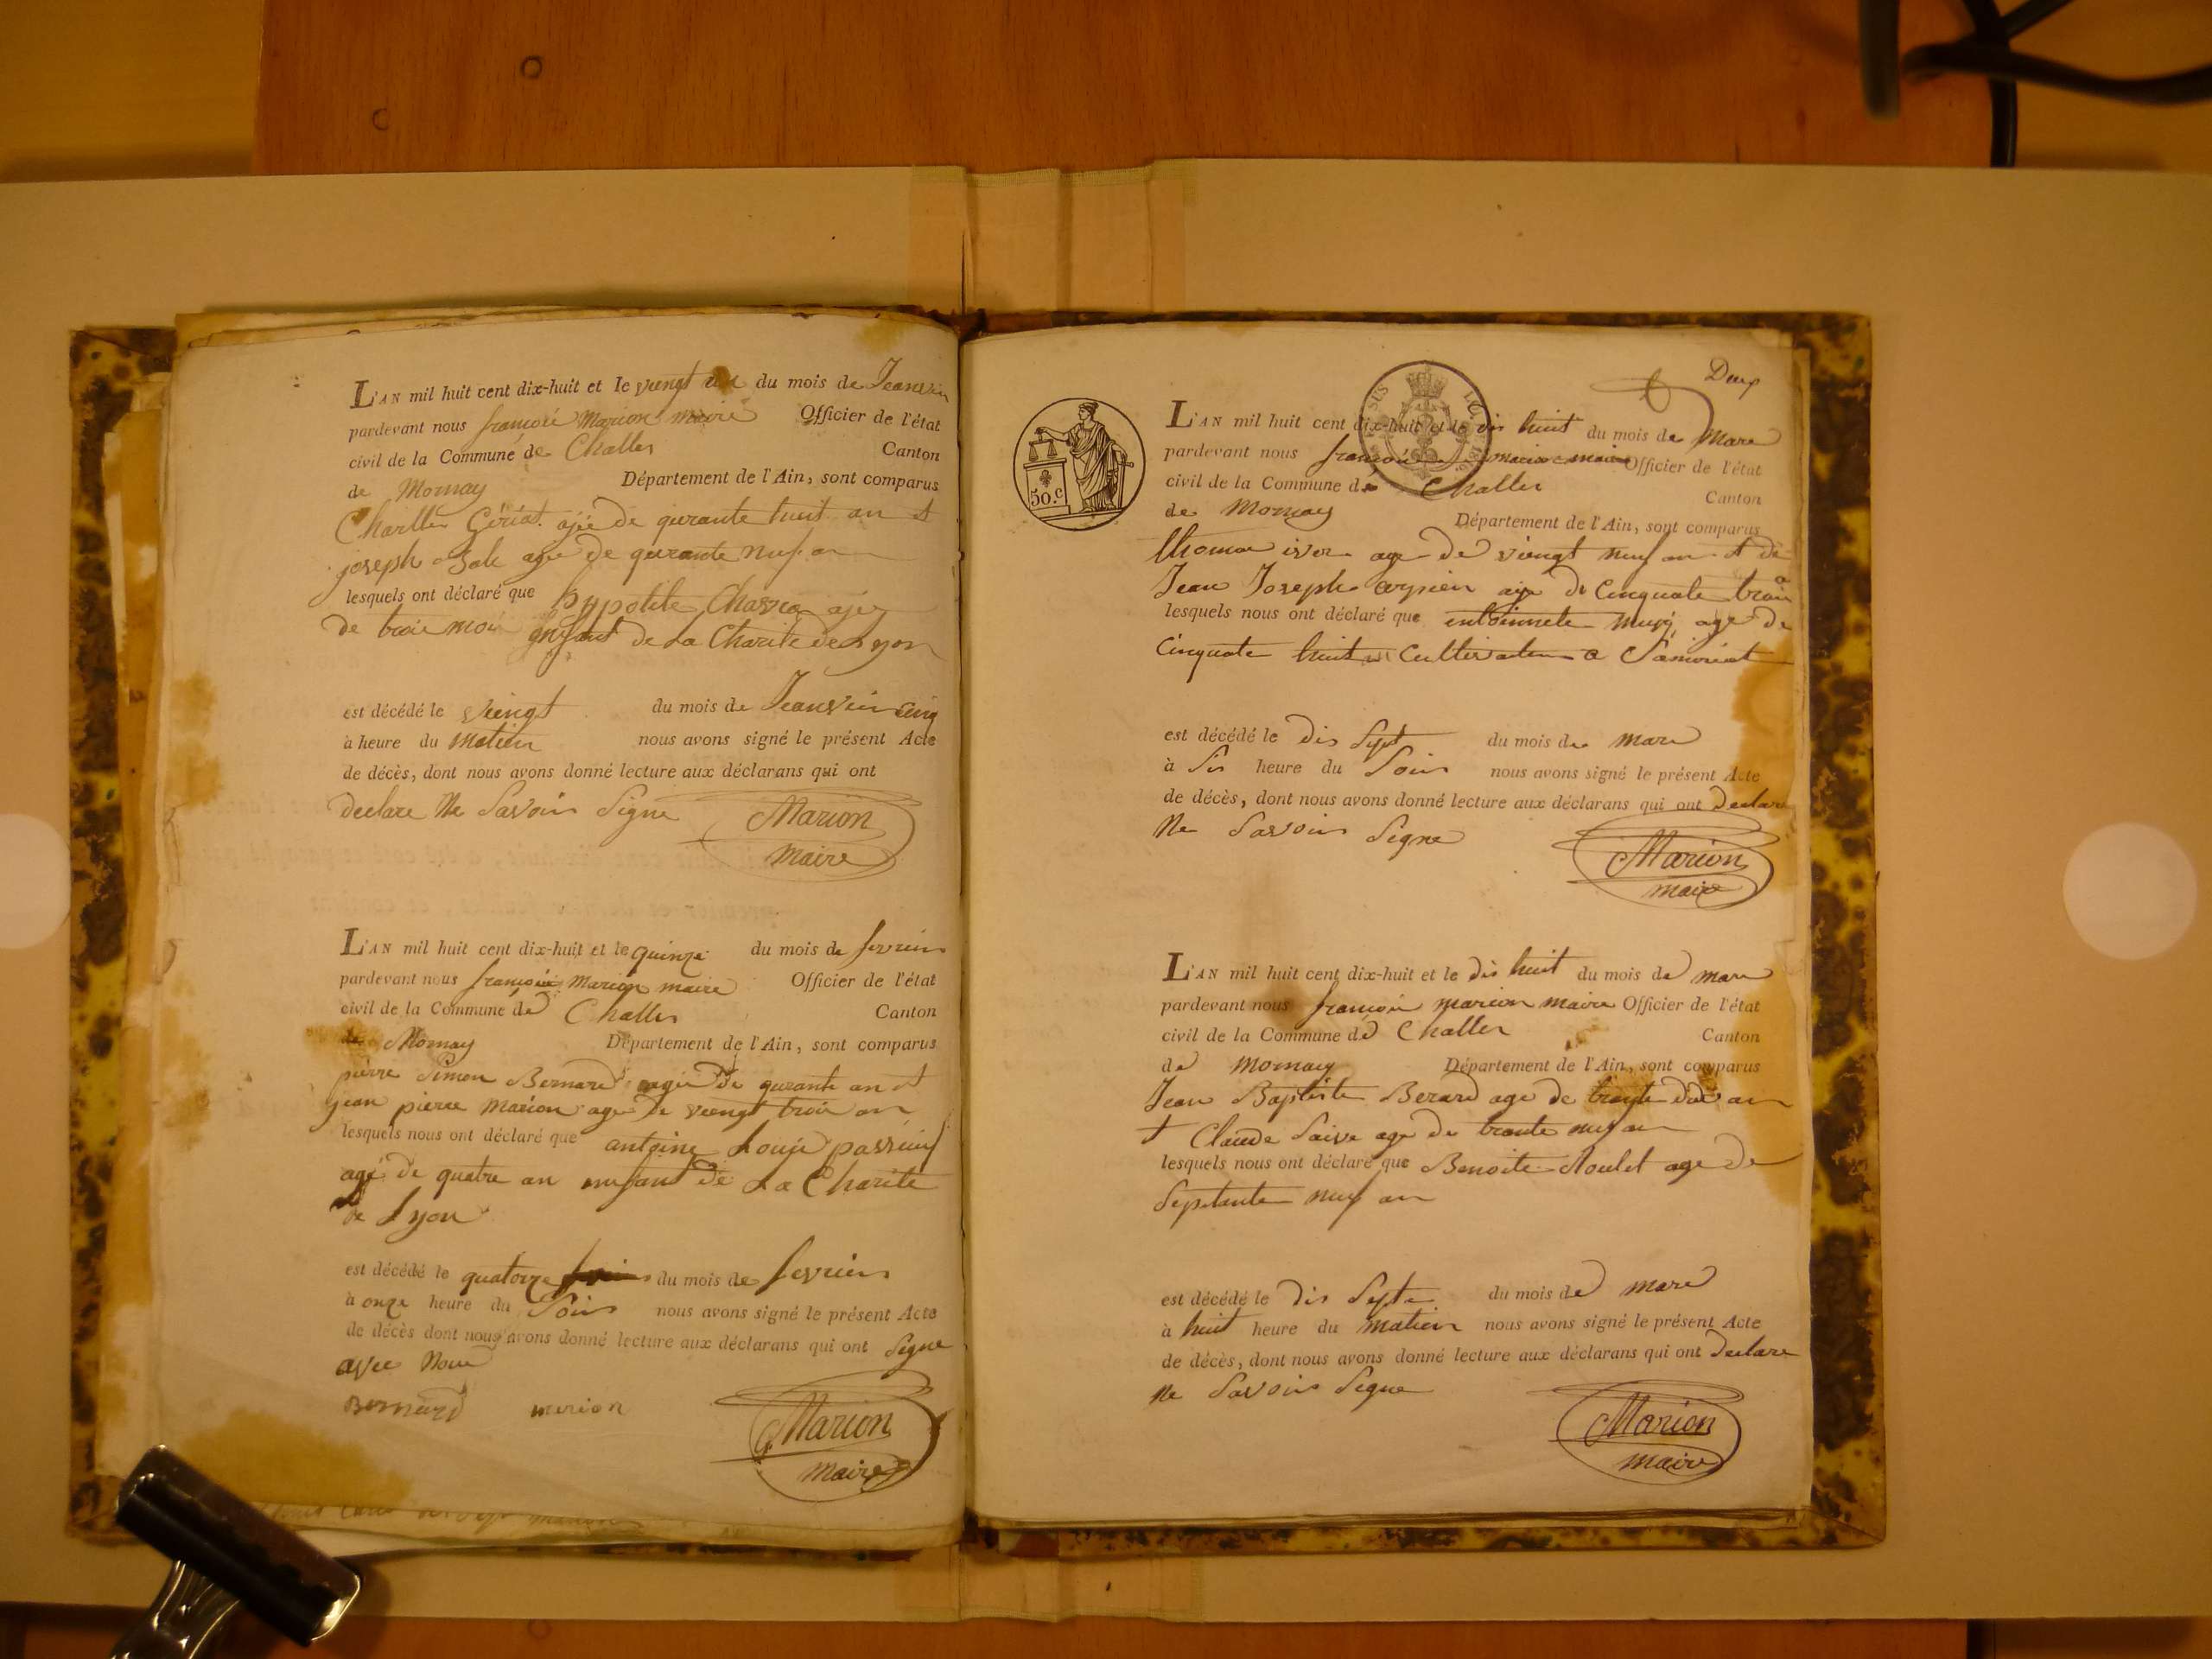 L'AN mil huit cent dix-huit et le viengt du mois de Jeanvier
pardevant nous françois Marion maire Officier de l'état
civil de la Commune de Challes Canton
de Mornay Département de l'Ain, sont comparus
Charlles ajée de qurante huit an et
joseph agé de qurante nuf an
lesquels ont déclaré que hypolite ajez
de trois moi enfant de La Charité de Lyon
est décédé le viengt du mois de Jeanvier cinq
à heure du matien nous avons signé le présent Acte
de décès, dont nous avons donné lecture aux déclarans qui ont
declare Ne Savoir Signe Marion
maire
L'AN mil huit cent dix-huit et le quinze du mois de fevrier
pardevant nous françois Marion maire Officier de l'état
civil de la Commune de Challes Canton
de Mornay Département de l'Ain, sont comparus
pierre Simon Bernard agée de qurante an et
jean pierre Marion age de viengt troi an
lesquels nous ont déclaré que antoine Louji
agé de quatre an enfant de La Charité
de Lyon
est décédé le quatorze du mois de fevrier
à onze heure du Soir nous avons signé le présent Acte
de décès dont nous avons donné lecture aux déclarans qui ont Signe
avec Nous
Bernard marion Marion
maire
Deux
50.c
L'AN mil huit cent dix-huit et le dis huit du mois de Mars
pardevant nous françois marion maire Officier de l'état
civil de la Commune de Challes Canton
de Mornay Département de l'Ain, sont comparus
thomas age de viengt neuf an et de
Jean Joseph aje de Cinquate troi
lesquels nous ont déclaré que age de
Cinquate huit Cultivateur a
est décédé le dis Sept du mois de mars
à Sis heure du Soir nous avons signé le présent Acte
de décès, dont nous avons donné lecture aux déclarans qui ont declare
Ne Savoir Signe Marion
maire
L'AN mil huit cent dix-huit et le dis huit du mois de mars
pardevant nous françois marion maire Officier de l'état
civil de la Commune de Challes Canton
de Mornay Département de l'Ain, sont comparus
Jean Baptiste Berard age de trante an
et Claude age de trante nuf an
lesquels nous ont déclaré que Benoite age de
Septante nuf an
est décédé le dis Septe du mois de mars
à huit heure du matien nous avons signé le présent Acte
de décès, dont nous avons donné lecture aux déclarans qui ont declare
Ne Savoir Signe Marion
maire